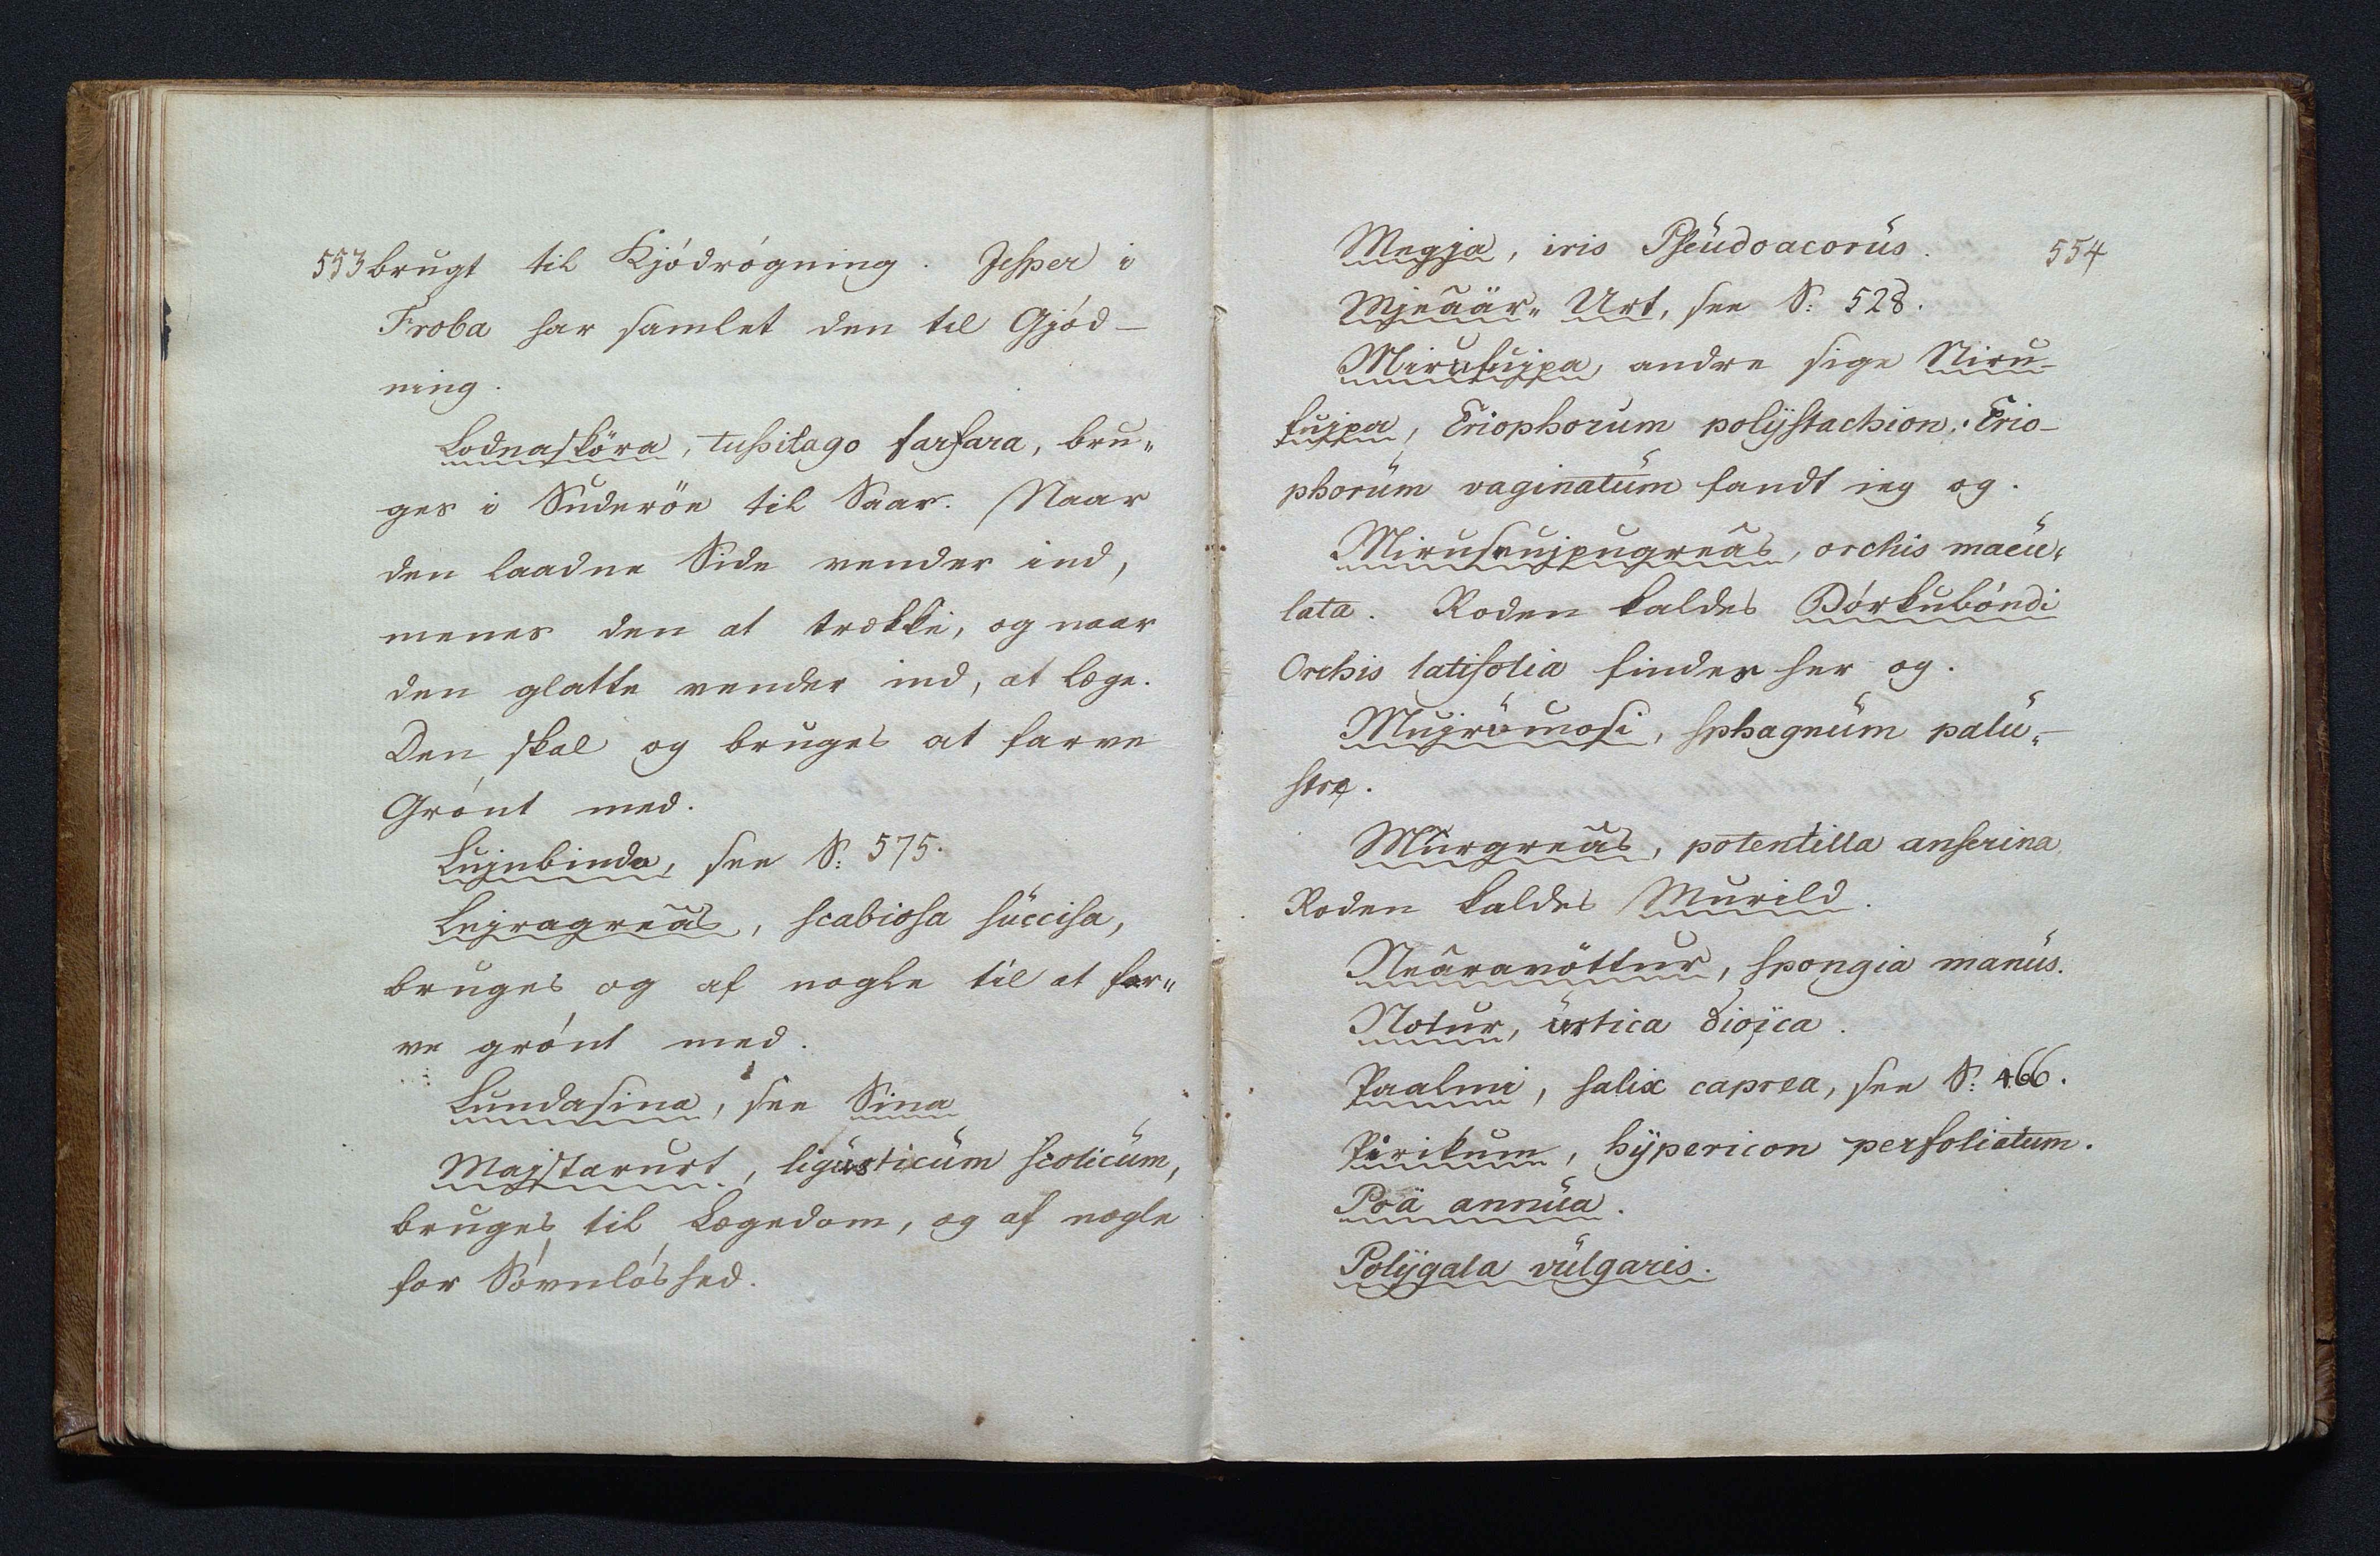 553 brugt til Kjødrøgning. Jesper i
Froba har samlet den til Gjød-
ning.
Lodnasköra, tussilago farfara, bru„
ges i Suderöe til Saar. Naar
den laadne Side vender ind,
menes den at trække, og naar
den glatte vender ind, at læge.
Den skal og bruges at farve
Grønt med.
Lujnbinda, see S: 575.
Lejragreãs, scabiosa succisa,
bruges og af nogle til at far„
ve grønt med.
Lundasina, see Sina
Majstarurt, ligusticum scoticum,
bruges til Lægedom, og af nogle
for Søvnløshed.
Megja, iris Pseudoacorus. 554
Mjeãär„ Urt, see S: 528.
Mirufujpa, andre sige Niru-
fujpa, Eriophorum polÿstachion. Erio-
phorum vaginatum fandt jeg og.
Mirusujpugreãs, orchis macu„
lata. Roden kaldes Dørkubóndi
Orchis latifolia findes her og.
Mujröumosi, sphagnum palu„
stre.
Murgreãs, potentilla anserina
Roden kaldes Murild.
Neãravöttur, spongia manus.
Notur, urtica dioica.
Paalmi, salix caprea, see S: 466.
Pirikum, hÿpericon perfoliatum.
Poä annua.
Polÿgala vulgaris.